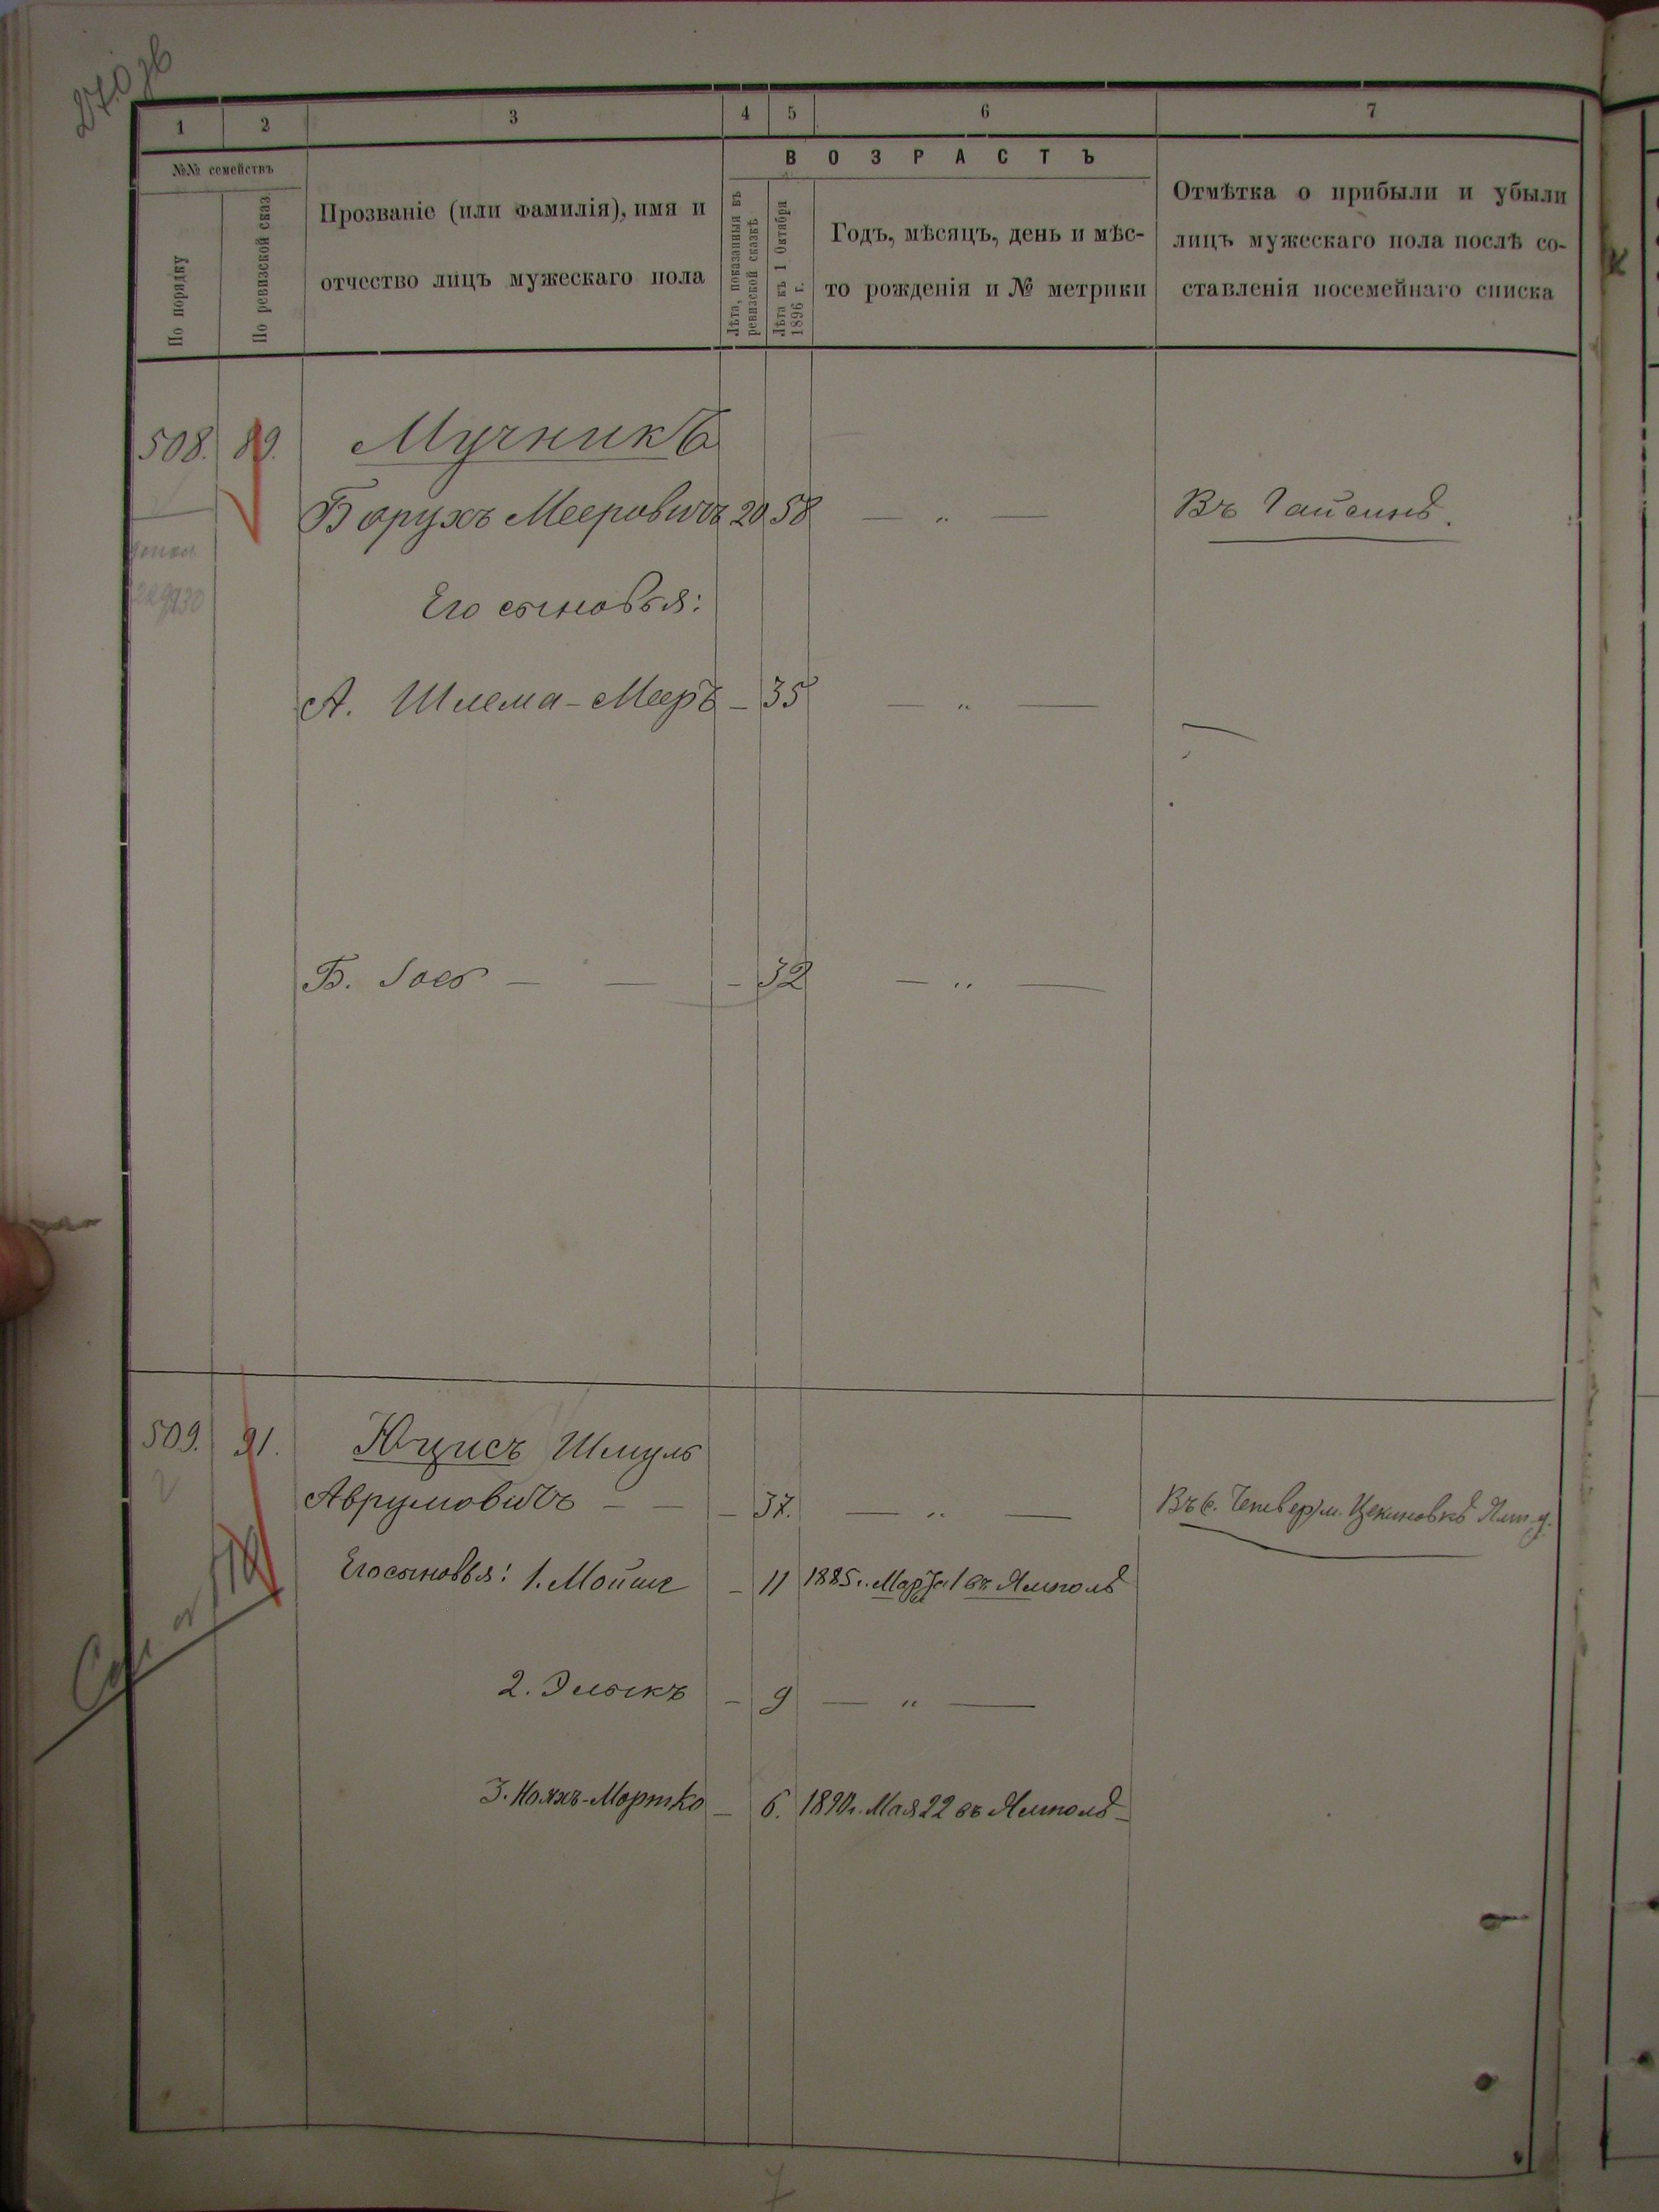 270 зв
1 2 3 4 5 6 7
№№ семействъ
По порядку
По ревизской сказ
Прозваніе (или фамилія), имя и
отчество лицъ мужескаго пола
ВОЗРАСТЪ
Лѣта, показанныя въ
ревизской сказкѣ
Лѣта къ 1 Октября
1896 г.
Годъ, мѣсяцъ, день и мѣс-
то рожденія и № метрики
Отмѣтка о прибыли и убыли
лицъ мужескаго пола послѣ со-
ставленія посемейнаго списка
508. 89. Мучникъ
Борухъ Мееровичъ 20 58 — " — Въ Гайсинѣ.
Его сыновья:
А. Шлема-Мееръ — 35 — " —
Б. Іось — — — 32 — " —
509. 91. Юцисъ Шмуль
Аврумовичъ — — — 37. — " — Въ с. Четвер/м. Цекиновкѣ Ямп. у.
Его сыновья: 1. Мойше — 11 1885 г. Марта 1 въ Ямполѣ
2. Элыкъ — 9 — " —
3. Нояхъ-Мортко — 6. 1890 г. Мая 22 въ Ямполѣ —
7